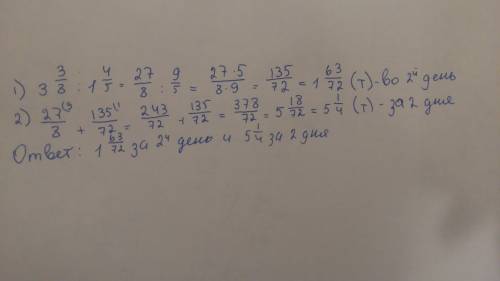 1) 3 3/8 : 1 4/5 = 27/8 : 9/5 = 27·5/8·9 = 135/72 = 1 63/72 (т) - во 2й день
2) 27/8 (9 + 135/72 (1 = 243/72 + 135/72 = 378/72 = 5 18/72 = 5 1/4 (т) - за 2 дня
Ответ: 1 63/72 за 2й день и 5 1/4 за 2 дня